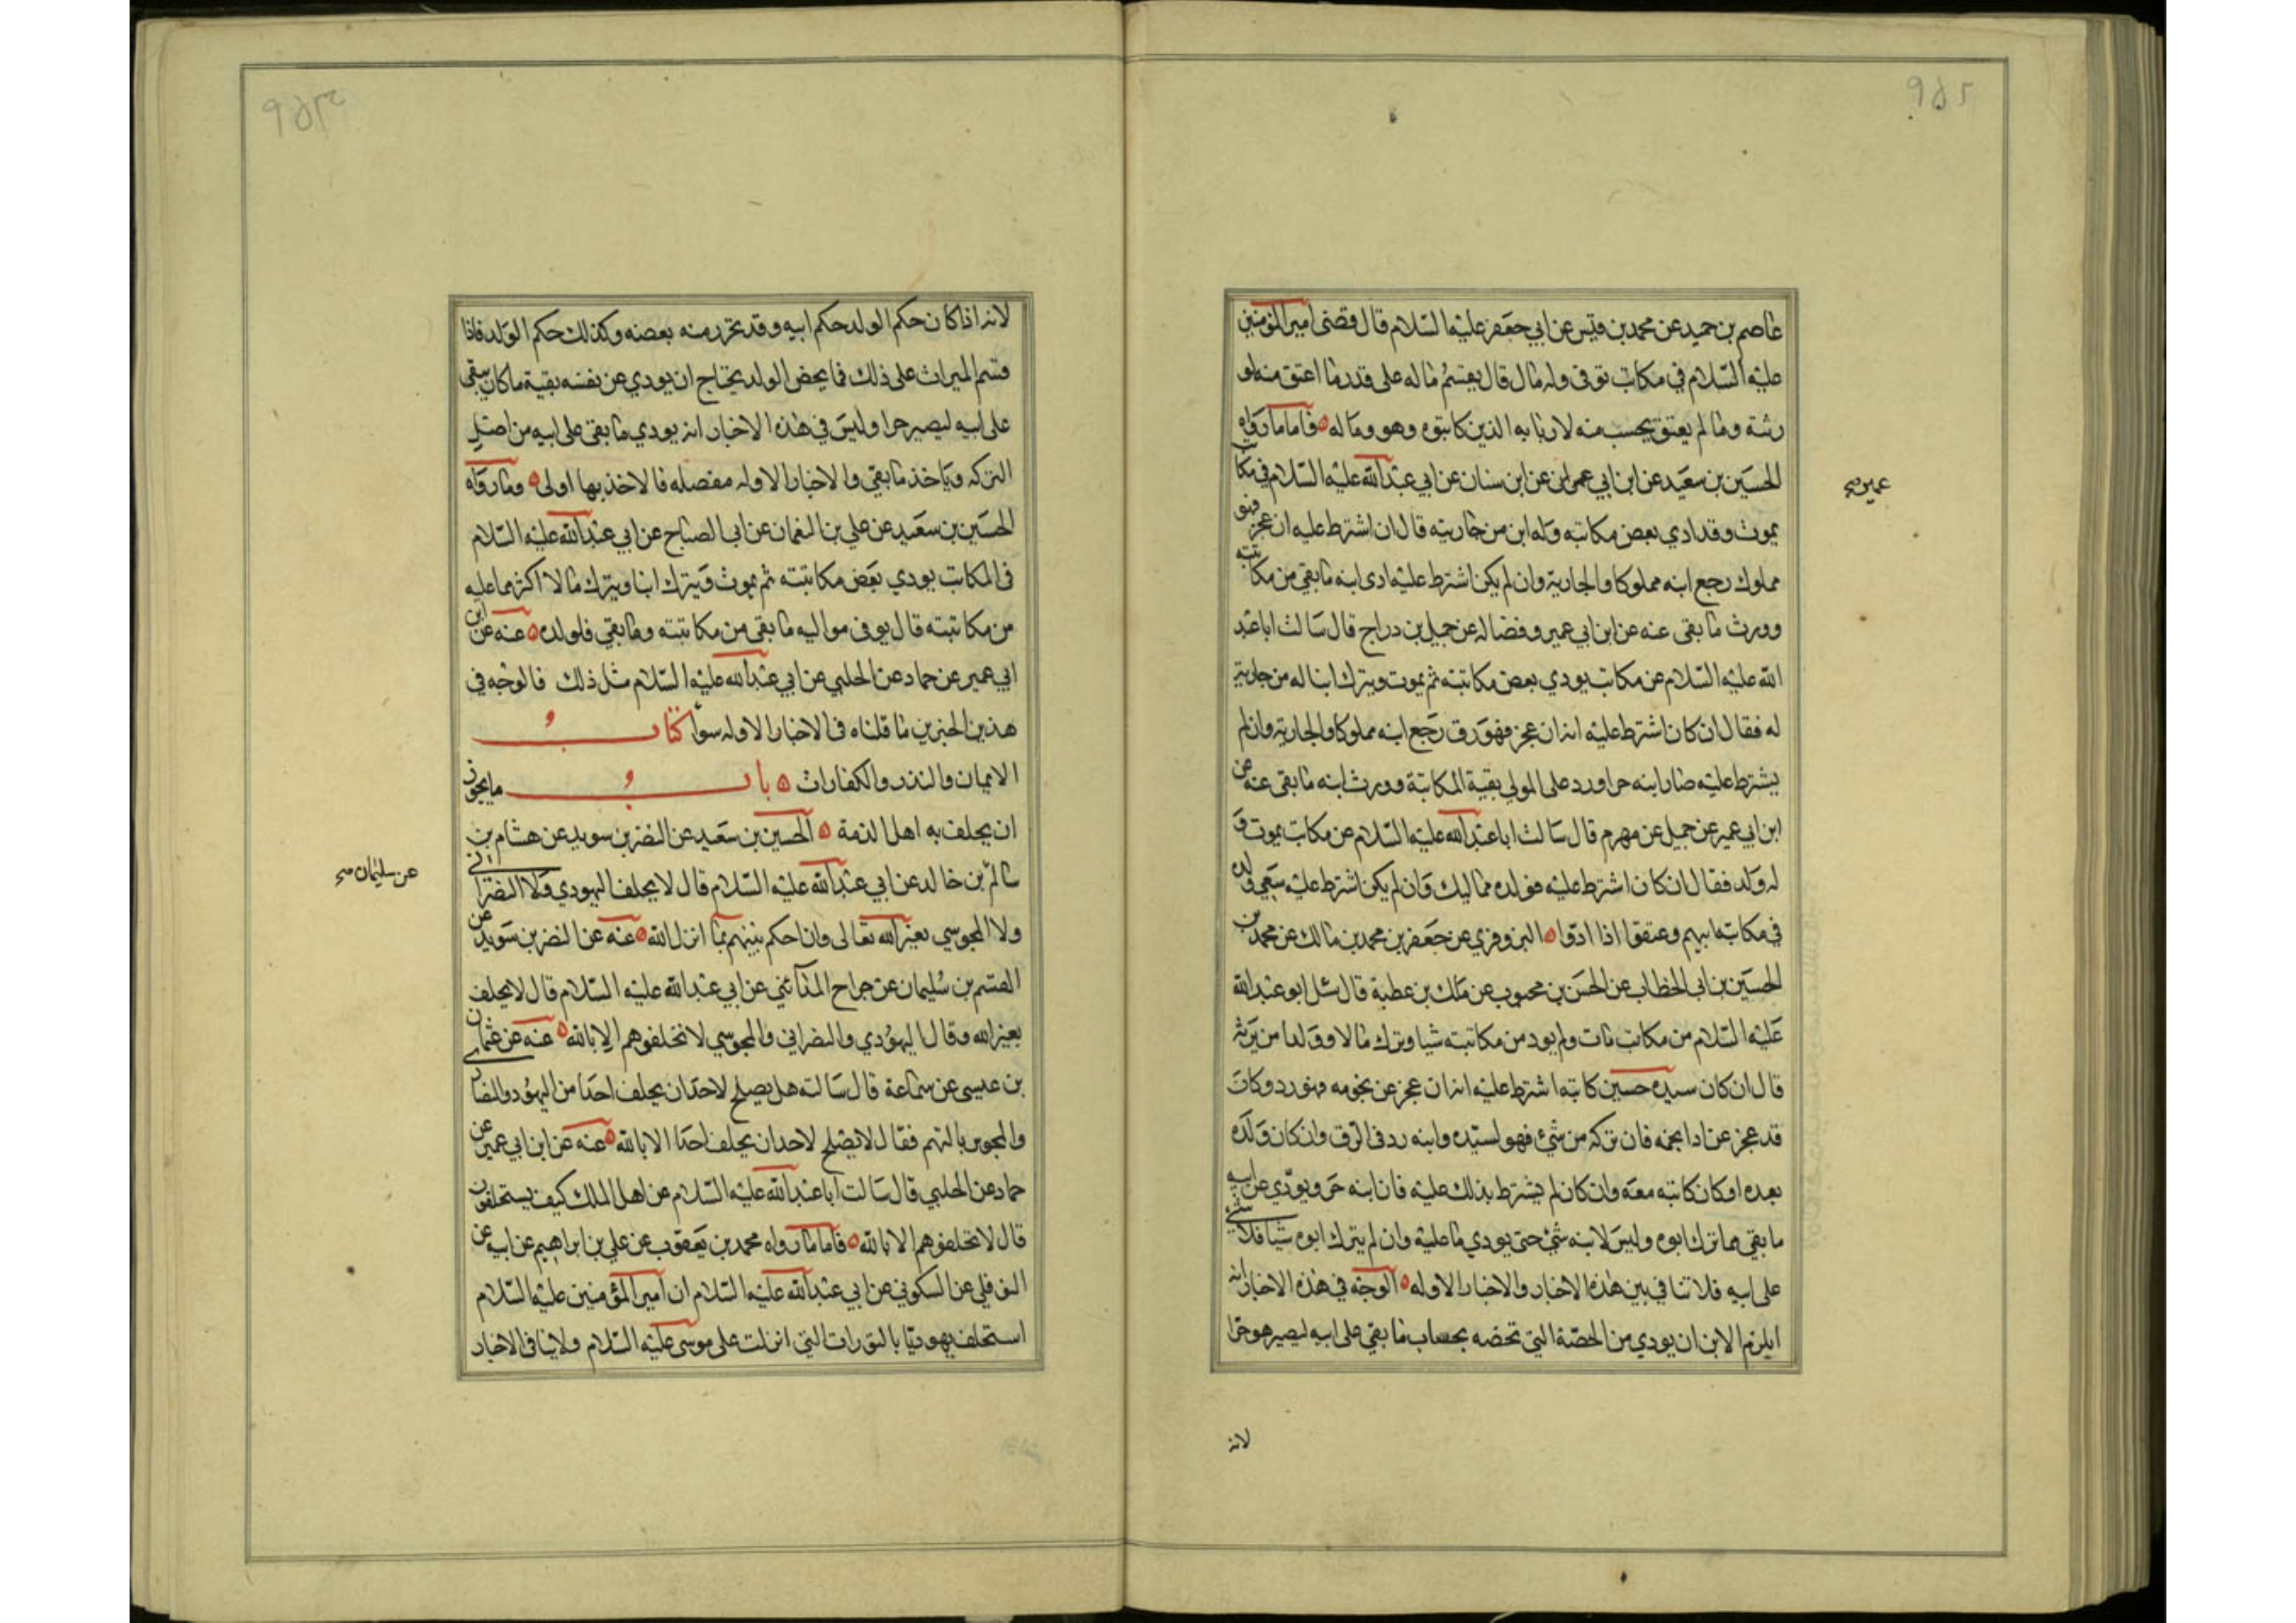 عاصم بن حميد عن محمد بن قيس عن ابي جعفر عليه السلام قال قضى امير المؤمنين
عليه السلام في مكاتب توفى وله مال قال يقسم ماله على قدر ما اعتق منه لو
رثته وما لم يعتق يحسب منه لاربابه الذين كاتبوه وهو وماله ه فاما ما رواه
الحسين بن سعيد عن ابن ابي عمران عن ابن سنان عن ابي عبد الله عليه السلام في مكا
عمير صح
يموت وقد ادي بعض مكاتبه وله ابن من جاريته قال ان اشترط عليه ان عجز فهو
مملوك رجع ابنه مملوكا والجارية وان لم يكن اشترط عليه ادى ابنه ما بقي من مكاتبته
وورث ما بقى عنه عن ابن ابي عمير وفضاله عن جميل بن دراج قال سالت ابا عبد
الله عليه السلام عن مكاتب يودي بعض مكاتبته ثم يموت ويترك ابنا له من جارية
له فقال ان كان اشترط عليه انه ان عجز فهو رق رجع ابنه مملوكا والجارية وان لم
يشترط عليه صار ابنه حرا ورد على المولي بقية المكاتبة وورث ابنه ما بقى عنه عن
ابن ابي عمير عن جميل عن مهزم قال سالت ابا عبد الله عليه السلام عن مكاتب يموت و
له ولد فقال ان كان اشترط عليه فولده مماليك وان لم يكن اشترط عليه سعي ولده
في مكاتبه ابيهم وعتقوا اذا ادوا ه البزوفري عن جعفر بن محمد بن مالك عن محمد بن
الحسين بن ابي الخطاب عن الحسن بن محبوب عن مالك بن عطية قال سئل ابو عبد الله
عليه السلام من مكاتب مات ولم يود من مكاتبته شيا وترك مالا وولدا من يرثه
قال ان كان سيده حسين كاتبه اشترط عليه انه ان عجز عن نجومه فهو رد وكان
قد عجز عن ادا نجمه فان تركه من شئ فهو لسيده وابنه رد في الرق وان كان ولده
بعده او كان كاتبه معه وان كان لم يشترط بذلك عليه فان ابنه حر ويودي عن ابيه
ما بقي مما ترك ابوه وليس لابنه شئ حتى يودي ما عليه وان لم يترك ابوه شيا فلا شئ
على ابيه فلا تنافي بين هذه الاخبار والاخبار الاوله ه الوجه في هذه الاخبار انه
ايلزم الابن ان يودي من الحصة التي تخصه بحساب ما بقي على ابيه ليصير هو حرا
لانه
لانه اذا كان حكم الولد حكم ابيه وقد تحرر منه بعضه وكذلك حكم الولد فاذا
قسم الميراث على ذلك فما يخص الولد يحتاج ان يودي عن نفسه بقية ما كان سقى
على ابيه ليصير حرا وليس في هذه الاخبار انه يودي ما بقي على ابيه من اصل
التركه وياخذ ما بقي والاخبار الاوله مفصله فالاخذ بها اولى ه وما رواه
الحسين بن سعيد عن علي بن النعمان عن ابي الصباح عن ابي عبد الله عليه السلام
في المكاتب يودي بعض مكاتبته ثم يموت ويترك ابنا ويترك مالا اكثر مما عليه
من مكاتبته قال يوفى مواليه ما بقى من مكاتبته وما بقي فلولده ه عنه عن ابن
ابي عمير عن حماد عن الحلبي عن ابي عبد الله عليه السلام مثل ذلك فالوجه في
هذين الخبرين ما قلناه في الاخبار الاوله سوا كتاب
الايمان والنذر والكفارات ه باب ما يجوز
ان يحلف به اهل الذمة ه الحسين بن سعيد عن النضر بن سويد عن هشام بن
سالم بن خالد عن ابي عبد الله عليه السلام قال لا يحلف اليهودي ولا النصراني
عن سليمان صح
ولا المجوسي بغير الله تعالى وان احكم بينهم بما انزل الله ه عنه عن النضر بن سويد عن
القسم بن سليمان عن جراح المدائني عن ابي عبد الله عليه السلام قال لا يحلف
بغير الله وقال اليهودي والنصراني والمجوسي لا تحلفوهم الا بالله ه عنه عن عثمان
بن عيسى عن سماعة قال سالته هل يصلح لاحد ان يحلف احدا من اليهود والنصارى
والمجوس بالهتهم فقال لا يصلح لاحد ان يحلف احدا الا بالله ه عنه عن ابن ابي عمير عن
حماد عن الحلبي قال سالت ابا عبد الله عليه السلام عن اهل الملل كيف يستحلفون
قال لا تحلفوهم الا بالله ه فاما ما رواه محمد بن يعقوب عن علي بن ابراهيم عن ابيه عن
النوفلي عن السكوني عن ابي عبد الله عليه السلام ان امير المؤمنين عليه السلام
استحلف يهوديا بالتورات التي انزلت على موسى عليه السلام ولا ينافي الاخبار